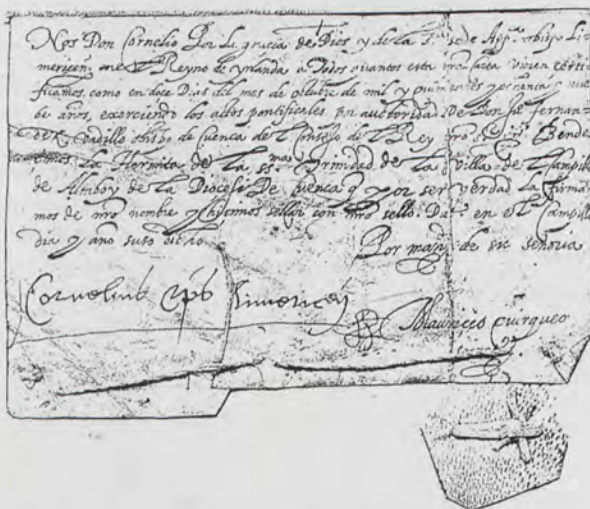 Nos Don Cornelio Por La gracia de Dios y de la Sta sede Appca obispo Li
en el Reyno de yrlanda a todos quantos esta vieren certi
ficamos como en doce Dias del mes de otubre de mil y quinientos y nouenta y nue
be años, exerciendo los actos pontificales en auctoridad De Don Po Fernan
Vadillo obispo de Cuenca del Consejo del Rey nro sr Bende
La Hermita de la ssma trinidad de la Villa del Campillo
de Altiboy de la Diocesi De Cuenca y por ser verdad la firma
mos de nro nombre y hicimos sellar con nro sello. Data en el Campillo
dia y año suso dicho
Por mando de su señoria
Cornelius eps Limericen
Mauricio